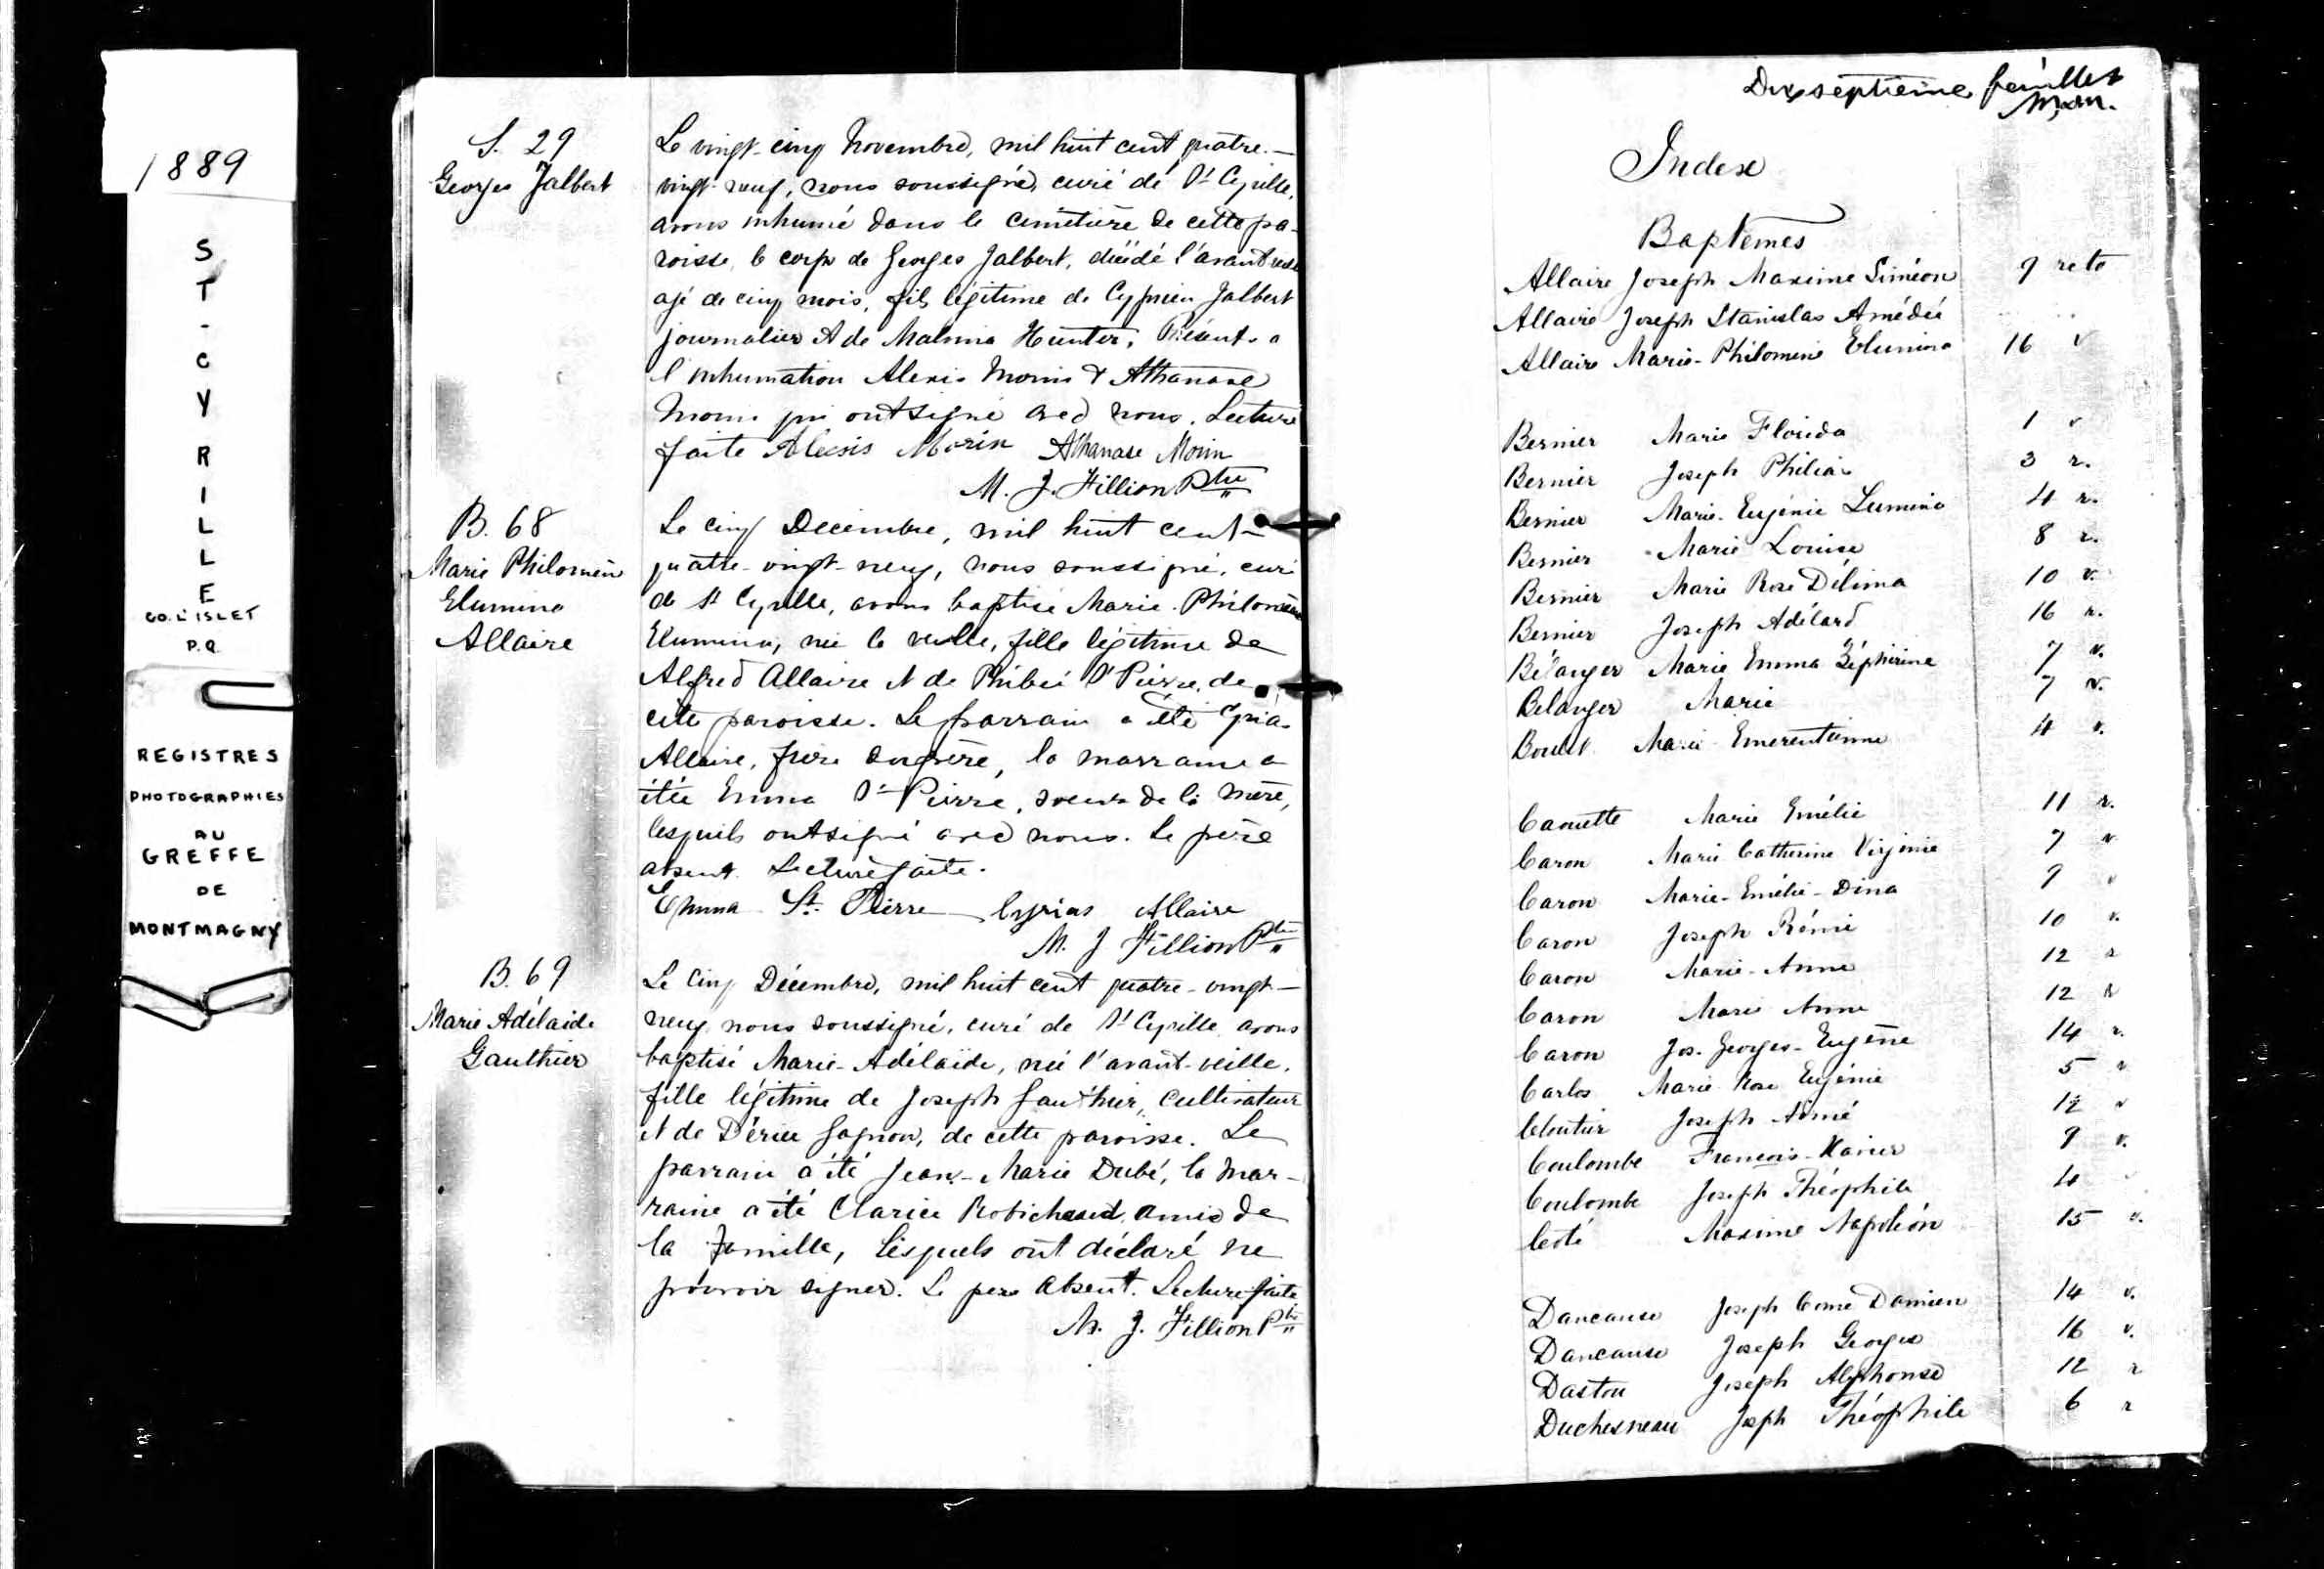 1889
ST-CYRILLE
CO. L'ISLET
P.Q.
REGISTRES
PHOTOGRAPHIES
AU
GREFFE
DE
MONTMAGNY
S. 29
Georges Jalbert
Le vingt-cinq Novembre, mil huit cent quatre-
vingt-neuf, nous soussigné, curé de St Cyrille,
avons inhumé dans le cimetière de cette pa-
roisse, le corps de Georges Jalbert, décédé l'avant
agé de cinq mois, fils légitime de Cyprien Jalbert
journalier et de Malvina Hunter, Présents a
l'inhumation Alexis Morin & Athanase
Morin qui ont signé avec nous. Lecture
faite Alexis Morin Athanase Morin
M. J. Fillion Ptre
B. 68
Marie Philomène
Elumina
Allaire
Le cinq Decembre, mil huit cent-
quatre-vingt-neuf, nous soussigné, curé
de St Cyrille, avons baptisé Marie-Philomène
Elumina, née la veille, fille légitime de
Alfred Allaire et de Phibée St Pierre, de
cette paroisse. Le parrain a été
Allaire, frère du père, la marraine a
étée Emma St Pierre, soeur de la mère,
lesquels ont signé avec nous. Le père
absent. Lecture faite.
Emma St. Pierre Cyrias Allaire
M. J Fillion Ptre
B. 69
Marie Adélaide
Gauthier
Le Cinq Décembre, mil huit cent quatre-vingt-
neuf nous soussigné, curé de St Cyrille avons
baptisé Marie-Adélaïde, née l'avant-veille,
fille légitime de Joseph Gauthier, cultivateur
et de Gagnon, de cette paroisse. Le
parrain a été Jean-Marie Dubé, la mar-
raine a été Clarice Robichaud amis de
la famille, Lesquels ont déclaré ne
pouvoir signer. Le père absent. Lecture faite
M. J. Fillion Ptre
Dix septième feuillet
Index
Baptemes
Allaire Joseph Maxime Siméon 9 recto
Allaire Joseph Stanislas Amédée
Allaire Marie-Philomène Elumina 16 v
Bernier Marie Florida 1 v
Bernier Joseph 3 r.
Bernier Marie-Eugénie Lumina 4 r.
Bernier Marie Louise 8 r.
Bernier Marie Rose Délima 10 v.
Bernier Joseph Adélard 16 r.
Bélanger Marie Emma Zéphirine 7 v.
Belanger Marie 7 v.
Boulet Marie Emerentienne 4 v.
Caouette Marie Emélie 11 r.
Caron Marie Catherine Virginie 7 v
Caron Marie-Emélie-Dina 9 v
Caron Joseph Rémie 10 v.
Caron Marie-Anne 12 r
Caron Marie Anne 12 r
Caron Jos. Georges-Eugène 14 r.
Carlos Marie Rose Eugénie 5 v
Cloutier Joseph Aimé 12 v
Coulombe François-Xavier 9 v.
Coulombe Joseph Théophile
Coté Maxime Napoléon 15 v.
Dancause Joseph Come Damien 14 v.
Dancause Joseph Georges 16 v.
Dastou Joseph Alphonse 12 r
Duchesneau Joseph Théophile 6 r